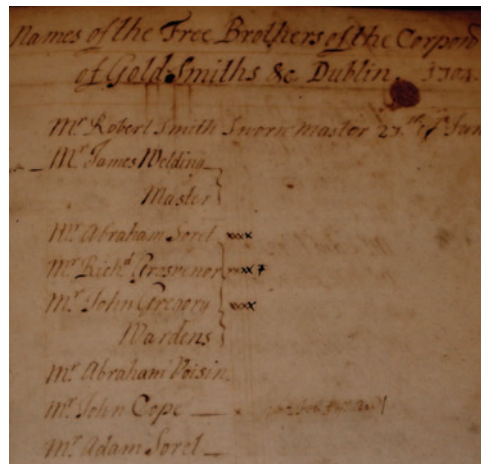 Names of the Free Brothers of the Corpon
of Gold-Smiths &c. Dublin, 1704.
Mr Robert Smith Sworn Master
Mr James Welding
Master
Mr Abraham Soret xxxx
Mr Richd Grosvenor xxx7
Mr John Gregory xxxx
Wardens
Mr Abraham Voisin
Mr John Cope
Mr Adam Soret